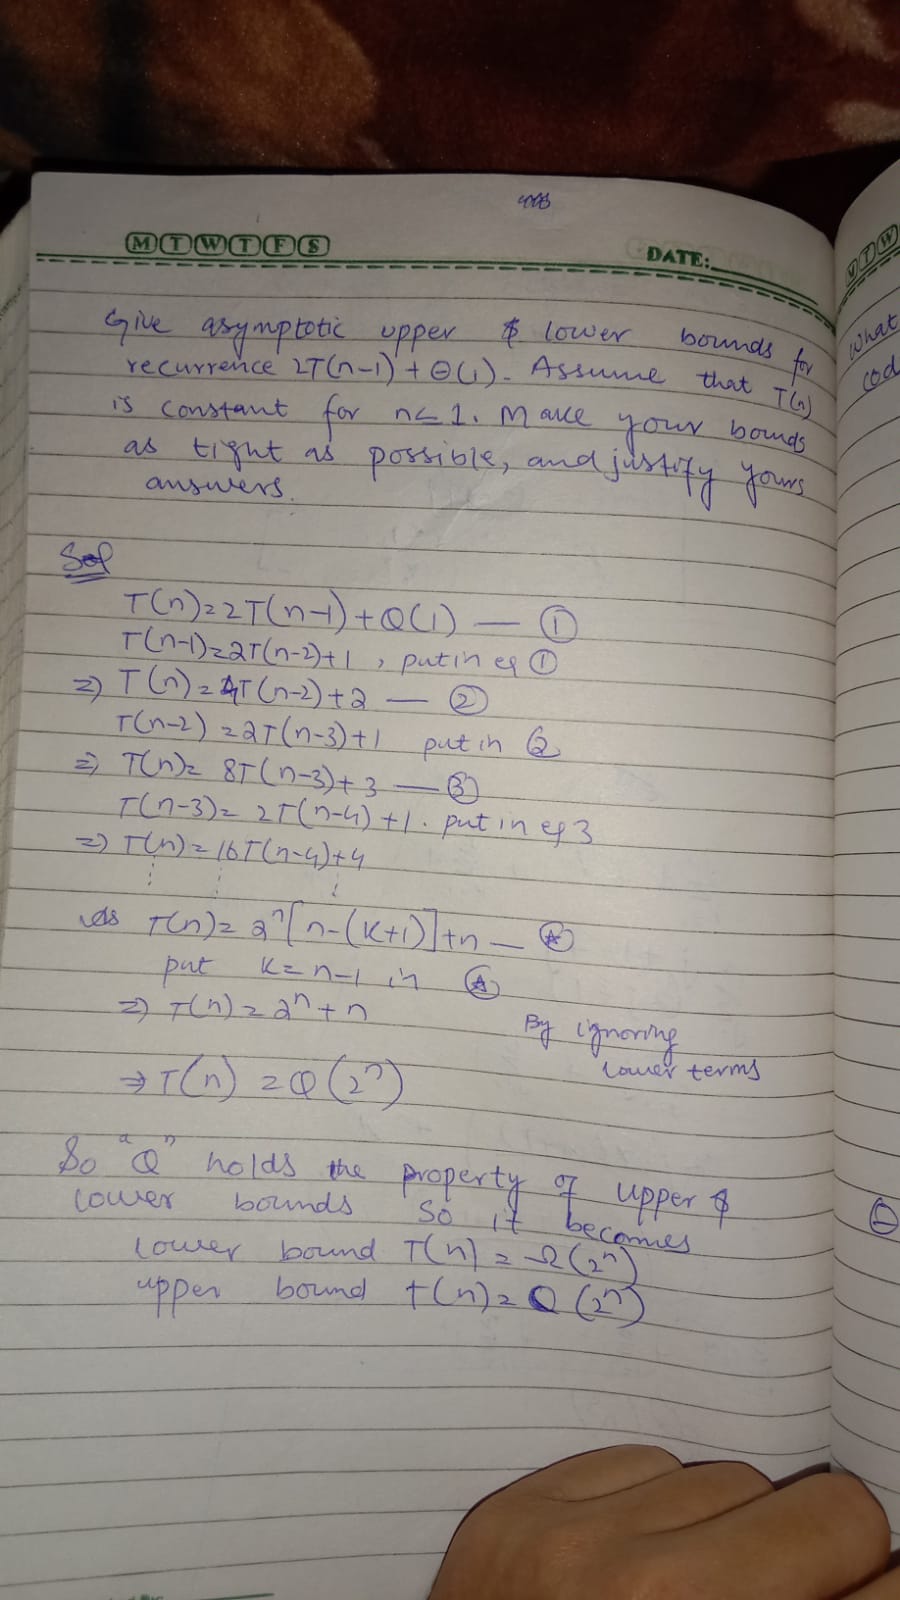 M T W T F S
DATE:
Give asymptotic upper & lower bounds for
recurrence 2T(n-1) + Θ(1). Assume that T(n)
is constant for n≤1. Make your bounds
as tight as possible, and justify yours
answers.
Sol
T(n)=2T(n-1)+Θ(1) — ①
T(n-1)=2T(n-2)+1, put in eq ①
⇒ T(n)=4T(n-2)+2 — ②
T(n-2)=2T(n-3)+1 put in ②
⇒ T(n)= 8T(n-3)+3 — ③
T(n-3)= 2T(n-4)+1. put in eq 3
⇒ T(n)=16T(n-4)+4
As T(n)= 2ⁿ[n-(k+1)]+n — Ⓐ
put k=n-1 in Ⓐ
⇒ T(n)=2ⁿ+n
By ignoring
lower terms
⇒ T(n) = Θ(2ⁿ)
So "Θ" holds the property of upper &
lower bounds so it becomes
lower bound T(n) = Ω(2ⁿ)
upper bound T(n)= O(2ⁿ)
T W
What
cod